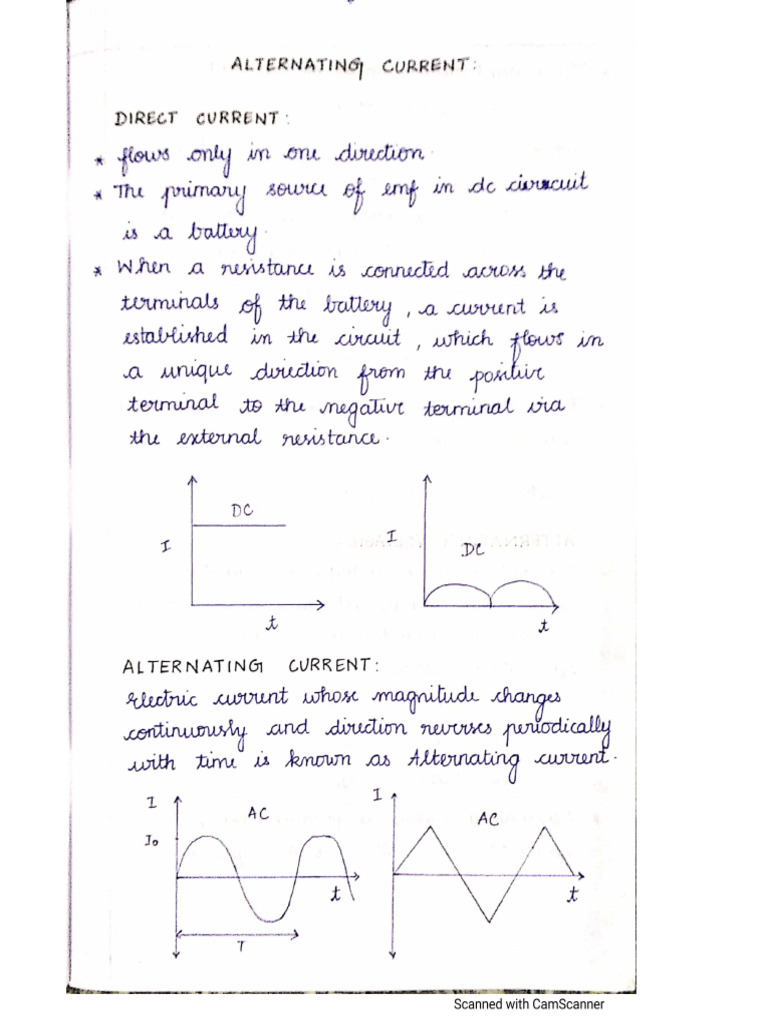 ALTERNATING CURRENT:
DIRECT CURRENT:
* flows only in one direction.
* The primary source of emf in dc circuit
is a battery.
* When a resistance is connected across the
terminals of the battery, a current is
established in the circuit, which flows in
a unique direction from the positive
terminal to the negative terminal via
the external resistance.
DC
I
t
I
DC
t
ALTERNATING CURRENT:
Electric current whose magnitude changes
continuously and direction reverses periodically
with time is known as Alternating current.
I
AC
I₀
t
T
I
AC
t
Scanned with CamScanner